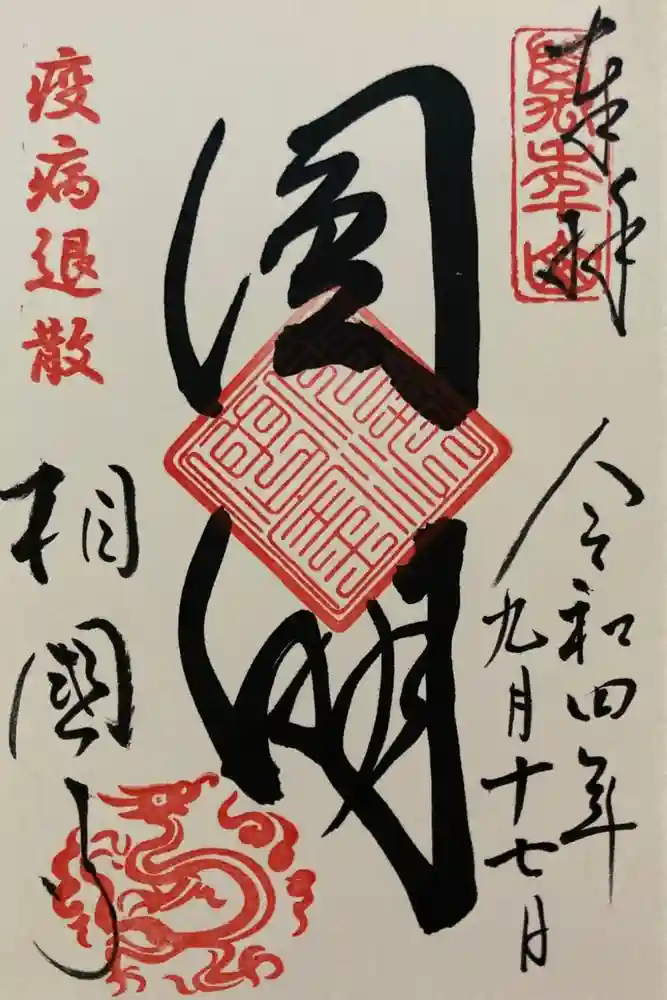 奉拝
令和四年
九月十七日
圓明
疫病退散
相國寺